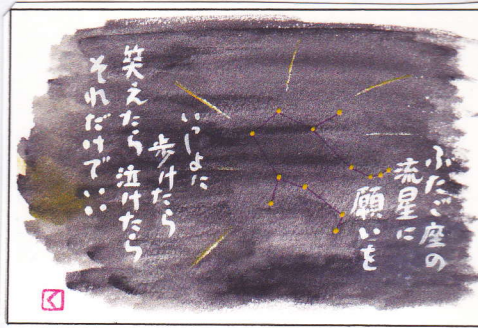 ふたご座の
流星に
願いを
いっしょに
歩けたら
笑えたら 泣けたら
それだけでいい
く